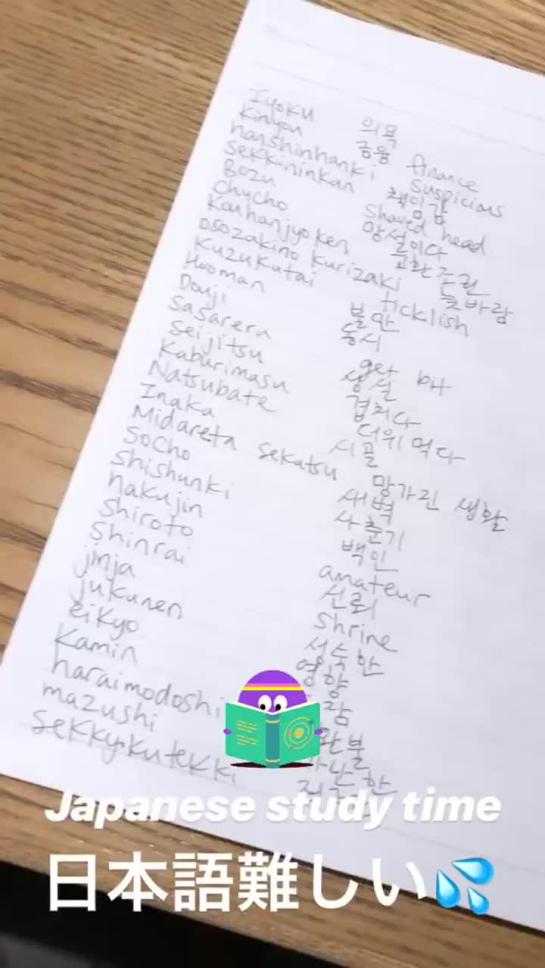 Iyoku 의욕
Kinyou 금융 finance
hanshinhanki suspicious
Sekkininkan 책임감
Bozu Shaved head
Chucho 망설이다
Kouhanjyoken 교환조건
osozakino kurizaki 늦바람
Kuzukutai ticklish
Huoman 불만
Douji 동시
Sasareru get bit
Seijitsu 성실
Kaburimasu 겹치다
Natsubate 더위먹다
Inaka 시골
Midareta sekatsu 망가진 생활
Socho 새벽
Shishunki 사춘기
hakujin 백인
Shiroto amateur
Shinrai 신뢰
jinja shrine
jukunen 성숙한
eikyo 영향
Kamin 잠
haraimodoshi 환불
mazushi 난한
Sekkyikutekki
Japanese study time
日本語難しい💦